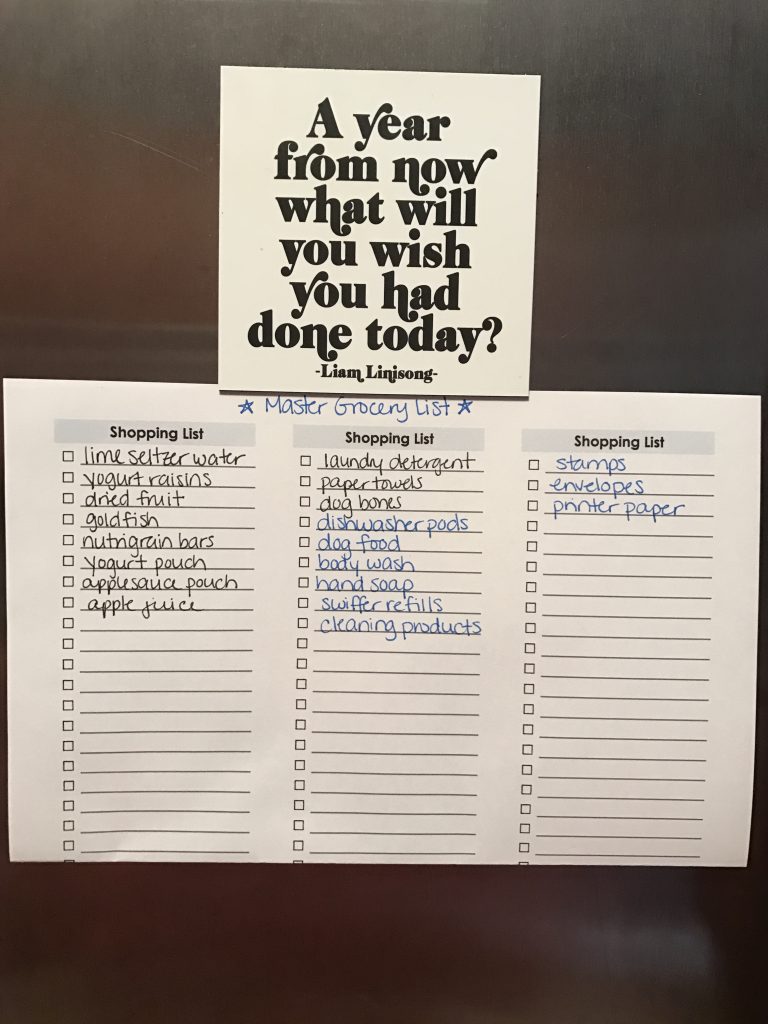 A year
from now
what will
you wish
you had
done today?
-Liam Linisong-
★ Master Grocery List ★
Shopping List
lime seltzer water
yogurt raisins
dried fruit
goldfish
nutrigrain bars
yogurt pouch
applesauce pouch
apple juice
Shopping List
laundy detergent
paper towels
dog bones
dishwasher pods
dog food
body wash
hand soap
swiffer refills
cleaning products
Shopping List
stamps
envelopes
printer paper